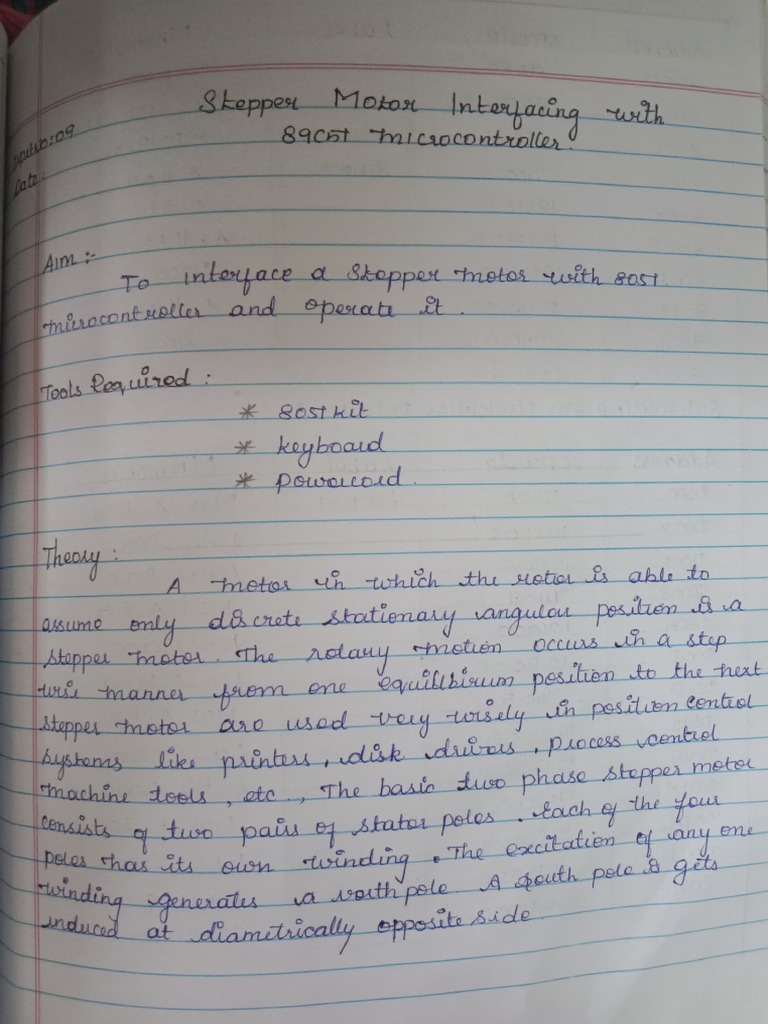 Stepper Motor Interfacing with
89C51 microcontroller.
Date:
Aim :-
To interface a stepper motor with 8051
microcontroller and operate it.
Tools Required :
* 8051 kit
* keyboard
* powercord.
Theory :
A motor in which the rotor is able to
assume only discrete stationary angular position is a
stepper motor. The rotary motion occurs in a step
wise manner from one equilibirum position to the next
stepper motor are used very wisely in position control
systems like printers, disk drives, process control
machine tools, etc.., The basic two phase stepper motor
consists of two pairs of stator poles. Each of the four
poles has its own winding. The excitation of any one
winding generates a north pole A south pole gets
induced at diametrically opposite side.